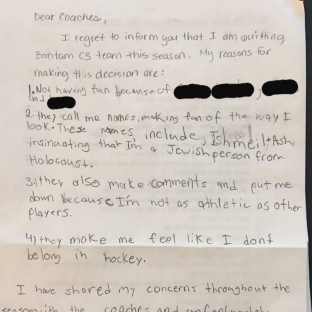 Dear Coaches,
I regret to inform you that I am quitting
Bantam C3 team this season. My reasons for
making this decision are:
1. Not having fun because of
and
2. they call me names, making fun of the way I
look. These names include, Ishmeil + Ash,
insinuating that Im a Jewish person from
Holocaust.
3) they also make comments and put me
down because I'm not as athletic as other
players.
4) they make me feel like I dont
belong in hockey.
I have shared my concerns throughout the
season with the coaches and unfortunately